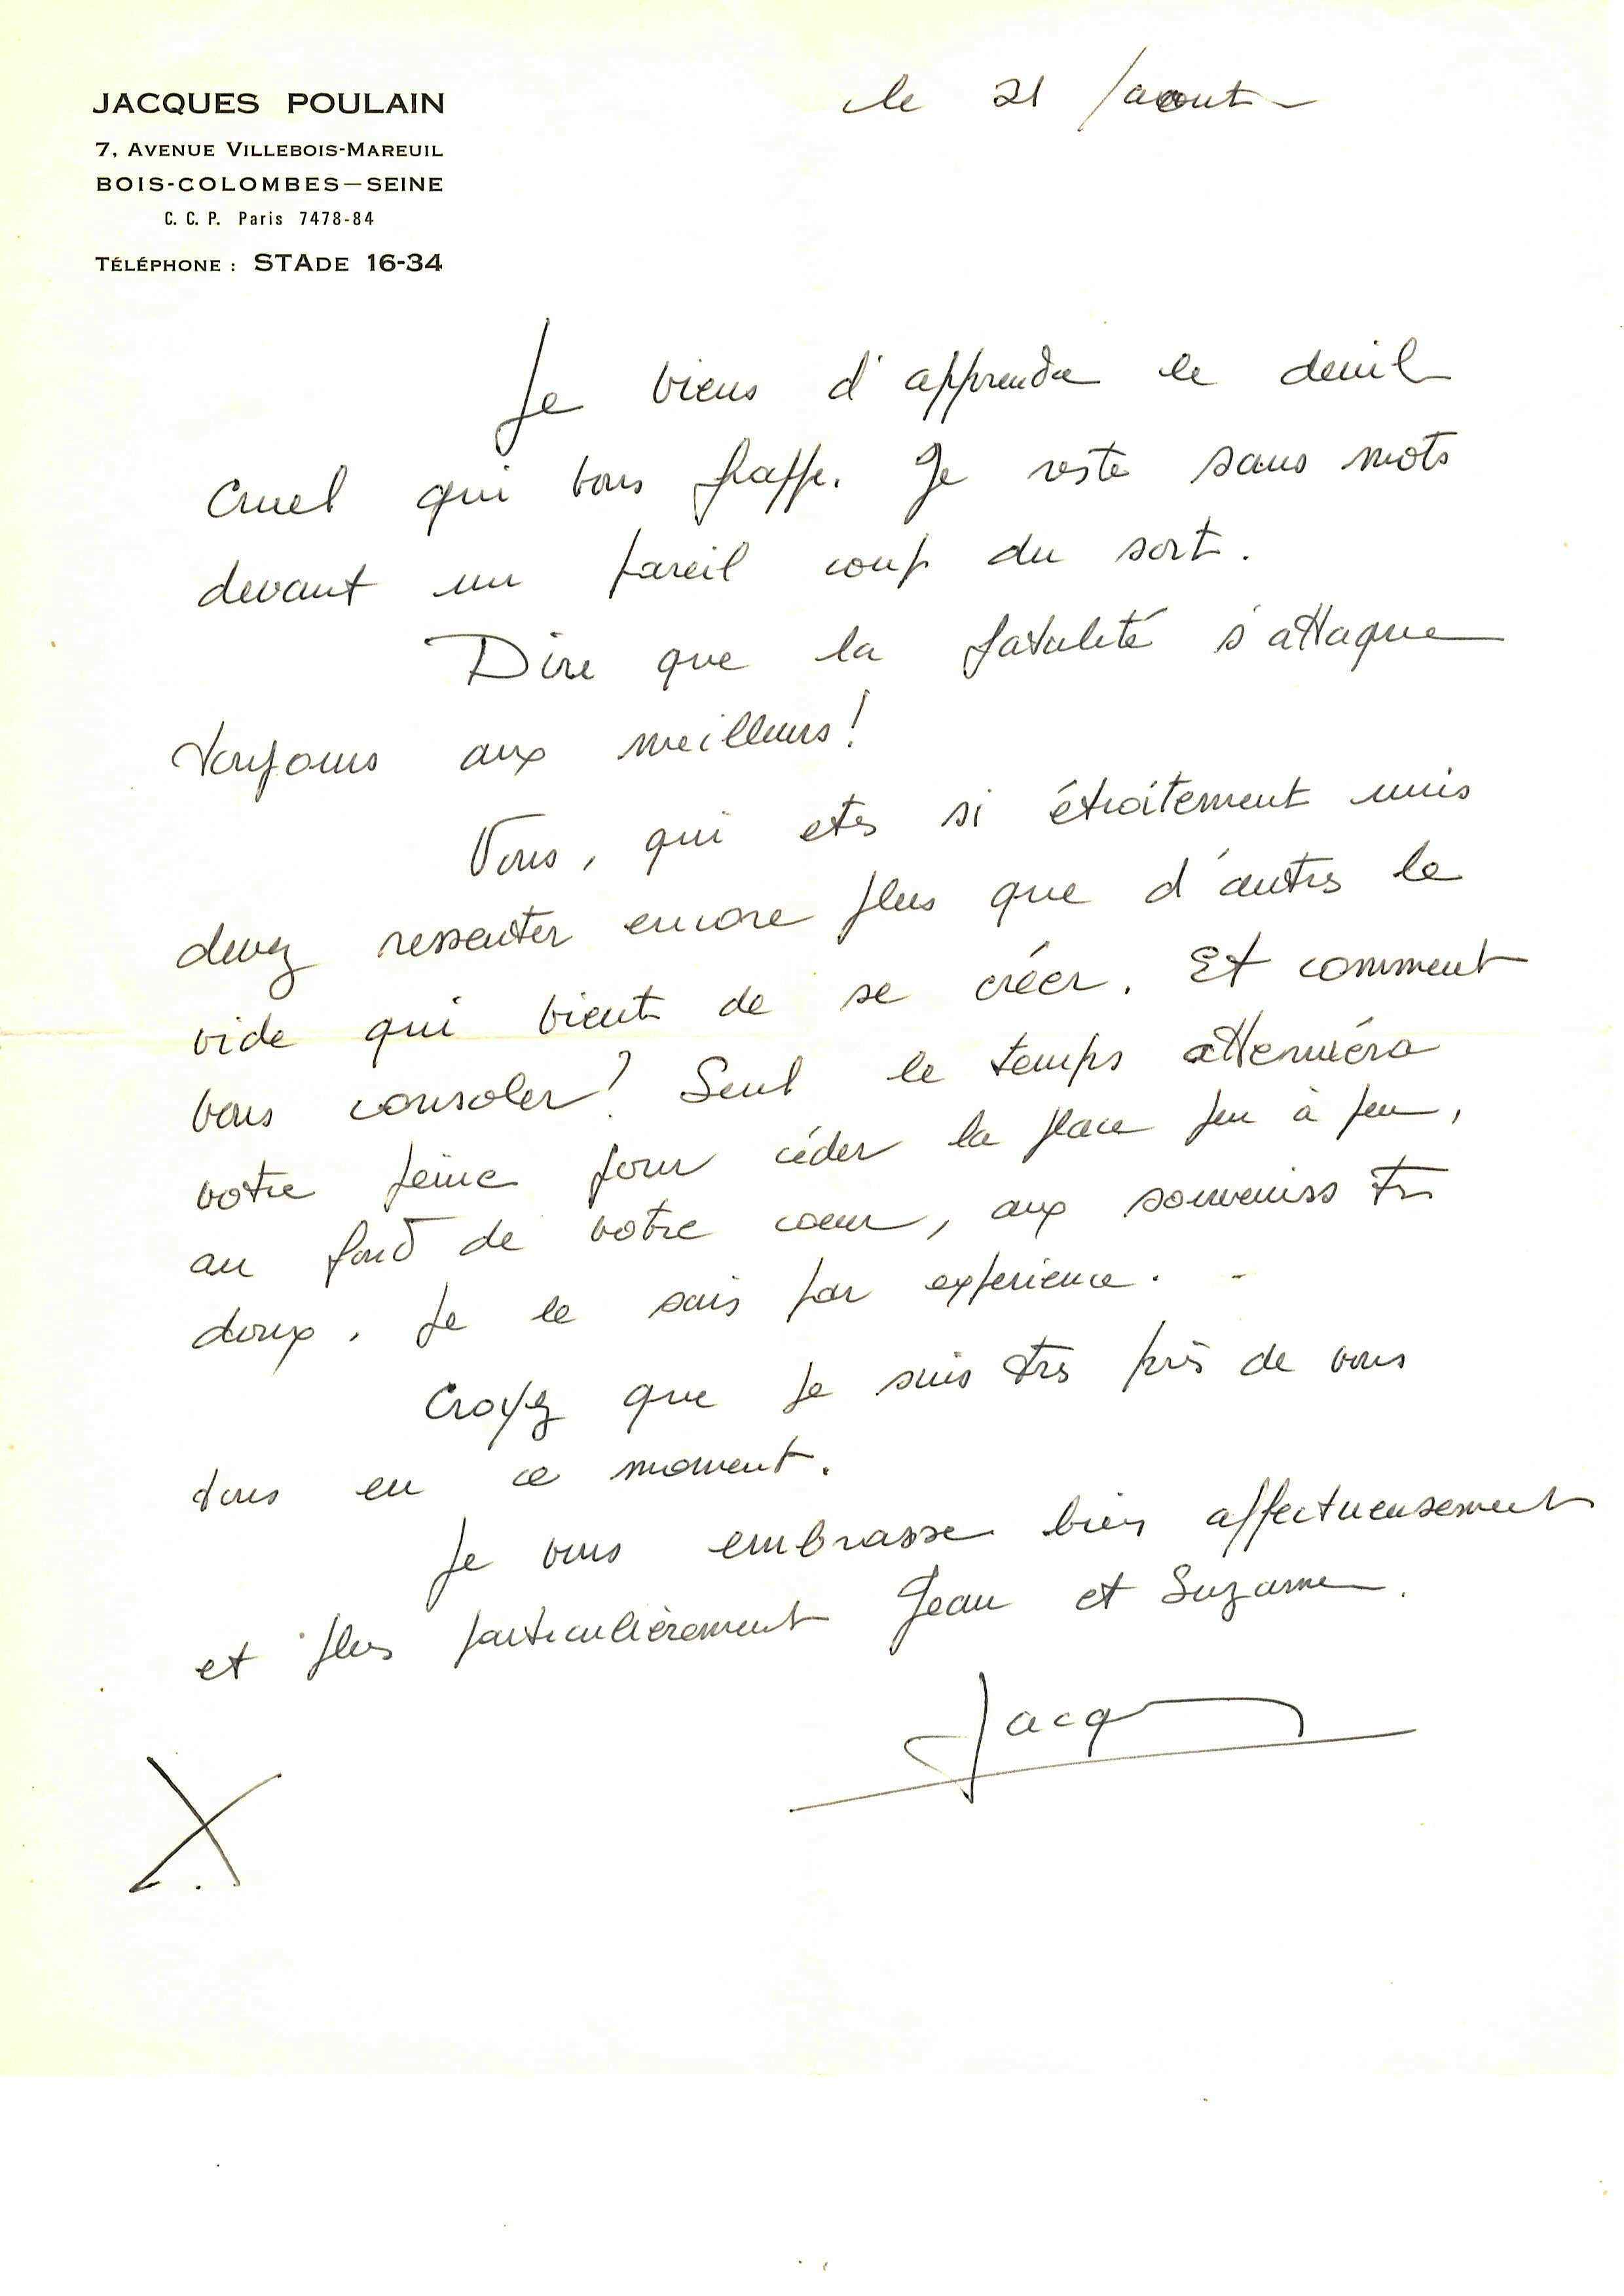 JACQUES POULAIN
7, AVENUE VILLEBOIS-MAREUIL
BOIS-COLOMBES—SEINE
C. C. P. Paris 7478-84
TÉLÉPHONE : STADE 16-34
le 21 aout
Je viens d'apprendre le deuil
cruel qui vous frappe. Je reste sans mots
devant un pareil coup du sort.
Dire que la fatalité s'attaque
toujours aux meilleurs!
Vous, qui etes si étroitement unis
devez ressentir encore plus que d'autres le
vide qui vient de se créer. Et comment
vous consoler? Seul le temps attenuéra
votre peine pour céder la place peu à peu,
au fond de votre coeur, aux souvenirs très
doux. Je le sais par experience.
Croyez que je suis très près de vous
tous en ce moment.
Je vous embrasse bien affectueusement
et plus particulièrement Jean et Suzanne.
Jacques